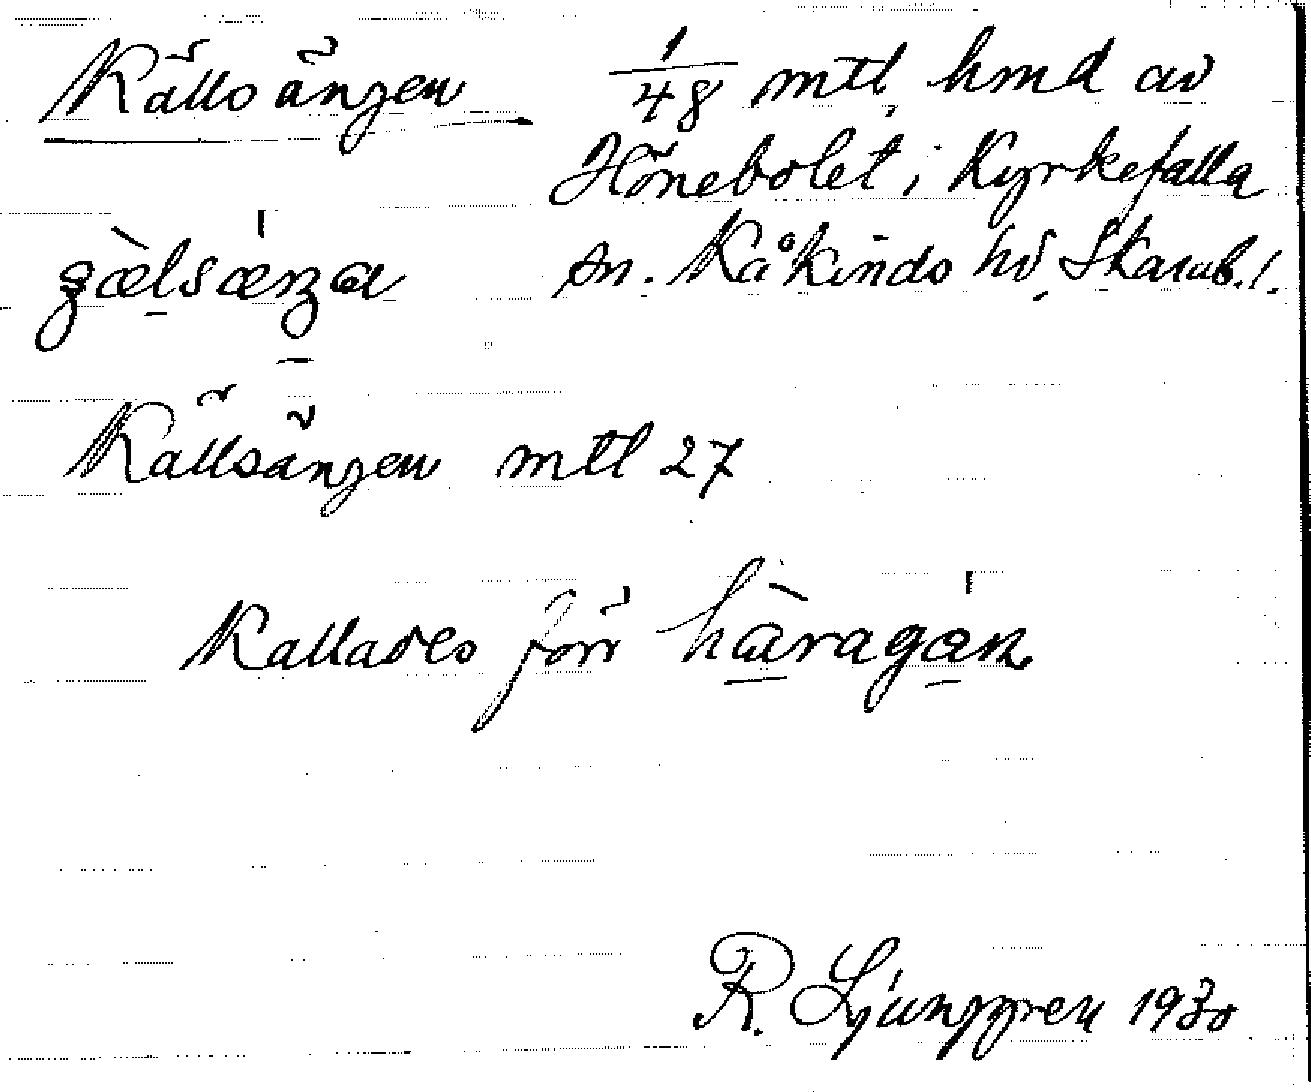 Källsängen 1/48 mtl, hmd av
Hönebolet i Kyrkefalla
sn. Kåkinds hd, Skarab. l.
Källsängen mtl 27
Kallades förr hàragá̱n
R. Ljunggren 1930